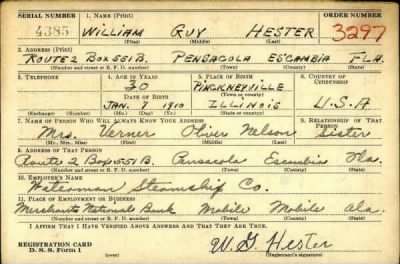 SERIAL NUMBER 1. NAME (Print) ORDER NUMBER
4385 WILLIAM GUY HESTER 3297
(First) (Middle) (Last)
2. ADDRESS (Print)
ROUTE 2 BOX 551B. PENSACOLA ESCAMBIA FLA.
(Number and street or R. F. D. number) (Town) (County) (State)
3. TELEPHONE 4. AGE IN YEARS 5. PLACE OF BIRTH 6. COUNTRY OF CITIZENSHIP
30 PINCKNEYVILLE
DATE OF BIRTH (Town or county)
JAN. 7 1910 ILLINOIS U.S.A
(Exchange) (Number) (Mo.) (Day) (Yr.) (State or country)
7. NAME OF PERSON WHO WILL ALWAYS KNOW YOUR ADDRESS 8. RELATIONSHIP OF THAT PERSON
Mrs. Verner Oliver Nelson Sister
(Mr., Mrs., Miss) (First) (Middle) (Last)
9. ADDRESS OF THAT PERSON
Route 2 Box 551B. Pensacola Escambia Fla.
(Number and street or R. F. D. number) (Town) (County) (State)
10. EMPLOYER'S NAME
Waterman Steamship Co.
11. PLACE OF EMPLOYMENT OR BUSINESS
Merchants National Bank Mobile Mobile Ala.
(Number and street or R. F. D. number) (Town) (County) (State)
I AFFIRM THAT I HAVE VERIFIED ABOVE ANSWERS AND THAT THEY ARE TRUE.
REGISTRATION CARD
D. S. S. Form 1 (over) W. G. Hester
(Registrant's signature)